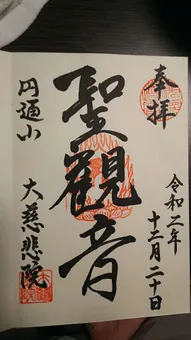 奉拝
令和二年
十二月二十日
聖観音
円通山
大慈悲院